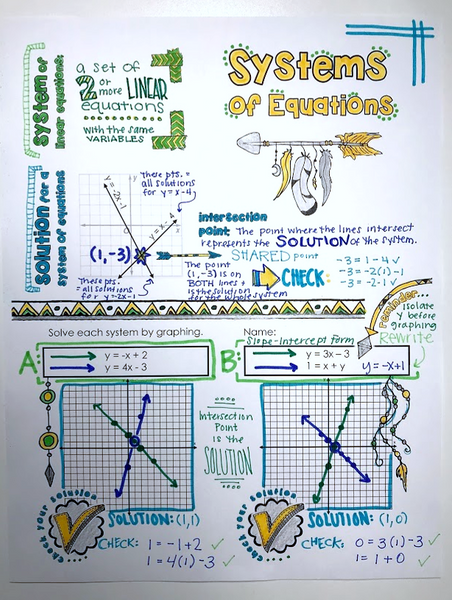 Systems
of Equations
System of
linear equations:
a set of
2 or more LINEAR
equations
with the same
VARIABLES
Solution for a
system of equations
y = -2x-1
y = x - 4
These pts. =
all solutions
for y = x-4
(1,-3)
These pts.
= all solutions
for y=-2x-1
intersection
point: The point where the lines intersect
represents the SOLUTION of the system.
SHARED point
The point
(1,-3) is on
BOTH lines +
is the solution
for the whole system
CHECK:
-3 = 1-4 ✓
-3 = -2(1)-1
-3 = -2-1 ✓
reminder...
Isolate
y before
graphing
Rewrite
Solve each system by graphing.
Name:
Slope-Intercept form
A:
y = -x + 2
y = 4x - 3
B:
y = 3x – 3
1 = x + y
y = -x+1
Intersection
Point
is the
SOLUTION
check your solution
SOLUTION: (1,1)
CHECK: 1 = -1+2 ✓
1 = 4(1)-3 ✓
check your solution
SOLUTION: (1,0)
CHECK: 0 = 3(1)-3 ✓
1 = 1+0 ✓